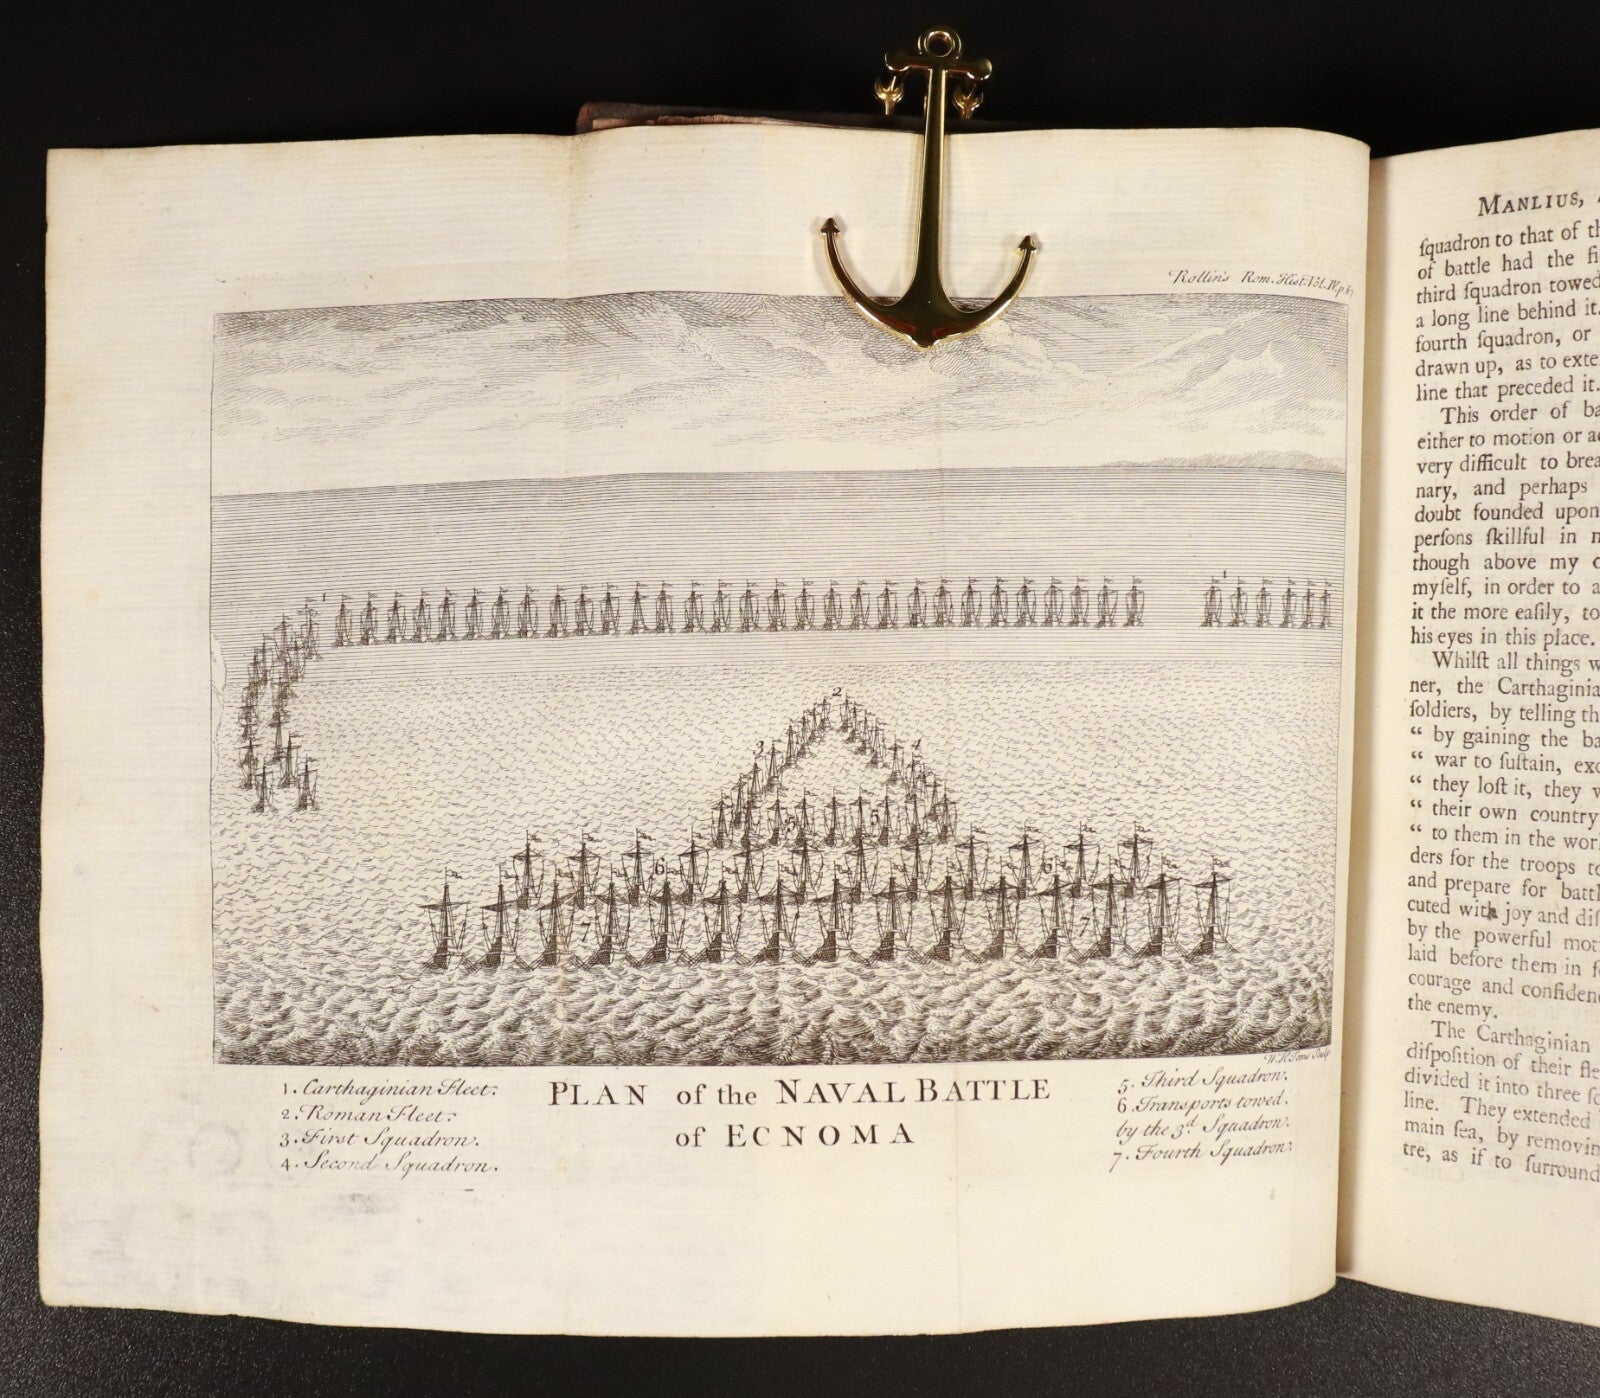 Rollin's Rom. Hist. Vol. IV. p. 67
1
1
2
3
4
5
5
6
6
7
7
W. H. Toms Sculp.
PLAN of the NAVAL BATTLE
of ECNOMA
1. Carthaginian Fleet.
2. Roman Fleet.
3. First Squadron.
4. Second Squadron.
5. Third Squadron.
6. Transports towed.
by the 3d. Squadron.
7. Fourth Squadron.
MANLIUS,
ſquadron to that of
of battle had the
third ſquadron towed
a long line behind it.
fourth ſquadron, or
drawn up, as to
line that preceded it.
This order of
either to motion or
very difficult to
nary, and perhaps
doubt founded upon
perſons ſkillful in
though above my
myſelf, in order to
it the more eaſily, to
his eyes in this place.
Whilſt all things
ner, the
ſoldiers, by telling
“ by gaining the
“ war to ſuſtain,
“ they loſt it, they
“ their own country
“ to them in the
ders for the troops
and prepare for
cuted with joy and
by the powerful
laid before them in
courage and
the enemy.
The Carthaginian
diſpoſition of their
divided it into three
line. They extended
main ſea, by
tre, as if to